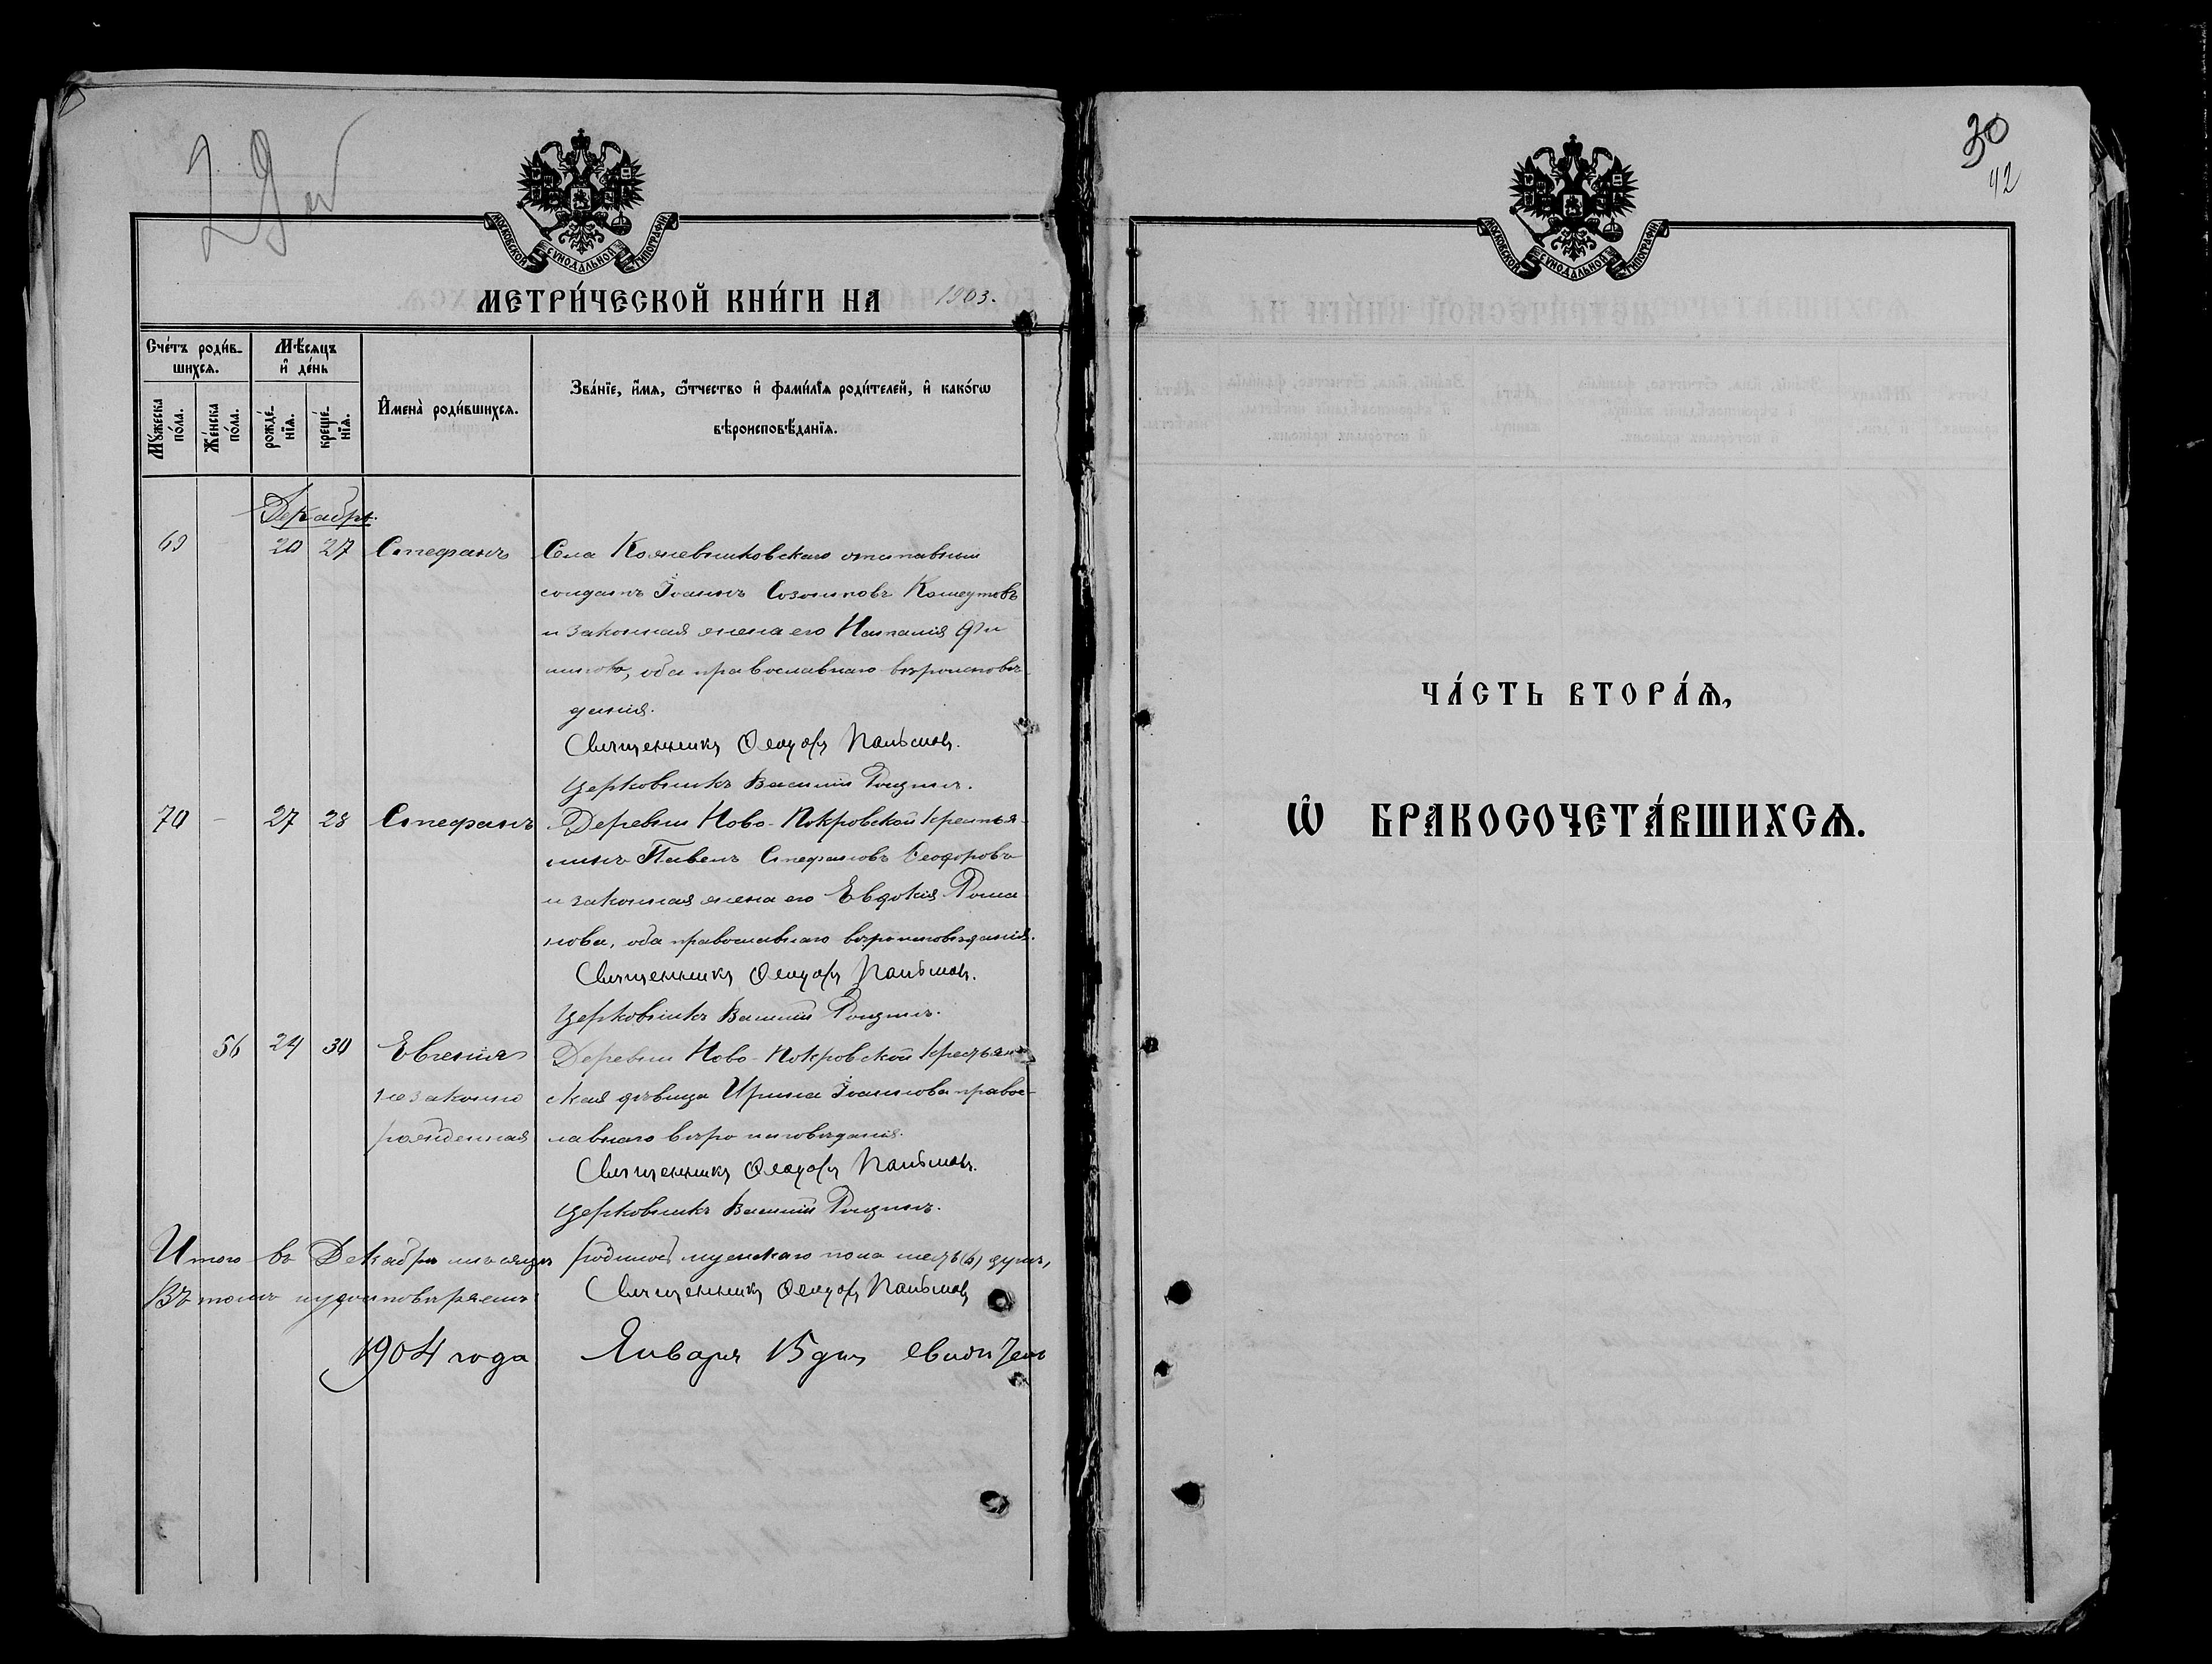 29 об
МОСКОВСКОЙ СѴНОДАЛЬНОЙ ТИПОГРАФІИ
МЕТРИ́ЧЕСКОЙ КНИ́ГИ НА 1903.
Сче́тъ роди́в-
шихсѧ.
Мѣ́сѧцъ
и҆ де́нь
Мꙋ́жеска
по́ла.
Же́нска
по́ла.
рожде́-
нїѧ.
креще́-
нїѧ.
И҆мена̀ роди́вшихсѧ.
Зва́нїе, и҆́мѧ, ѻ҆́тчество и҆ фами́лїѧ роди́телей, и҆ како́гѡ
вѣроисповѣ́данїѧ.
Декабрь.
69 20 27 Стефанъ Села Кожевниковскаго отставный
солдатъ Іоаннъ Созонтовъ
и законная жена его Наталія Фи
, оба православнаго вѣроисповѣ
данія.
Священникъ Ѳеодоръ Пальмовъ.
Церковникъ Василій
70 – 27 28 Стефанъ Деревни Ново-Покровской крестья-
нинъ Павелъ Стефановъ Ѳеодоровъ
и законная жена его Евдокія Рома
нова, оба православнаго вѣроисповѣданія.
Священникъ Ѳеодоръ Пальмовъ.
Церковникъ Василій
56 24 30 Евгенія Деревни Ново-Покровской крестьян
незаконно ская дѣвица Ирина Іоаннова правос-
рожденная лавнаго вѣроисповѣданія.
Священникъ Ѳеодоръ Пальмовъ.
Церковникъ Василій
Итого въ Декабрѣ мѣсяцѣ родилось мужескаго пола шесть (6) душъ,
Въ томъ и удостовѣряемъ: Священникъ Ѳеодоръ Пальмовъ
1904 года Января 15 дня
30
42
МОСКОВСКОЙ СѴНОДАЛЬНОЙ ТИПОГРАФІИ
ЧА́СТЬ ВТОРА́Ѧ,
Ѡ҆ БРАКОСОЧЕТА́ВШИХСѦ.